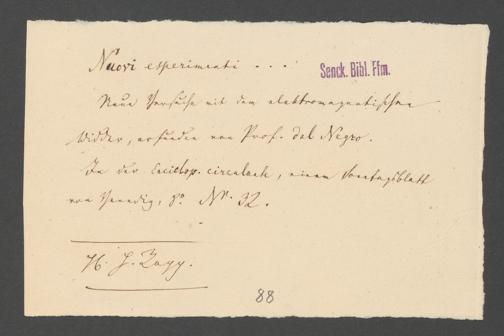 Nuovi esperimenti . . .
Senck. Bibl. Ffm.
Neue Versuche mit dem elektromagnetischen
Widder, erfunden von Prof. dal Negro.
In der Enciclop. circulante, einem Sonntagsblatt
von Venedig, 8º Nº. 32.
H. J.
88